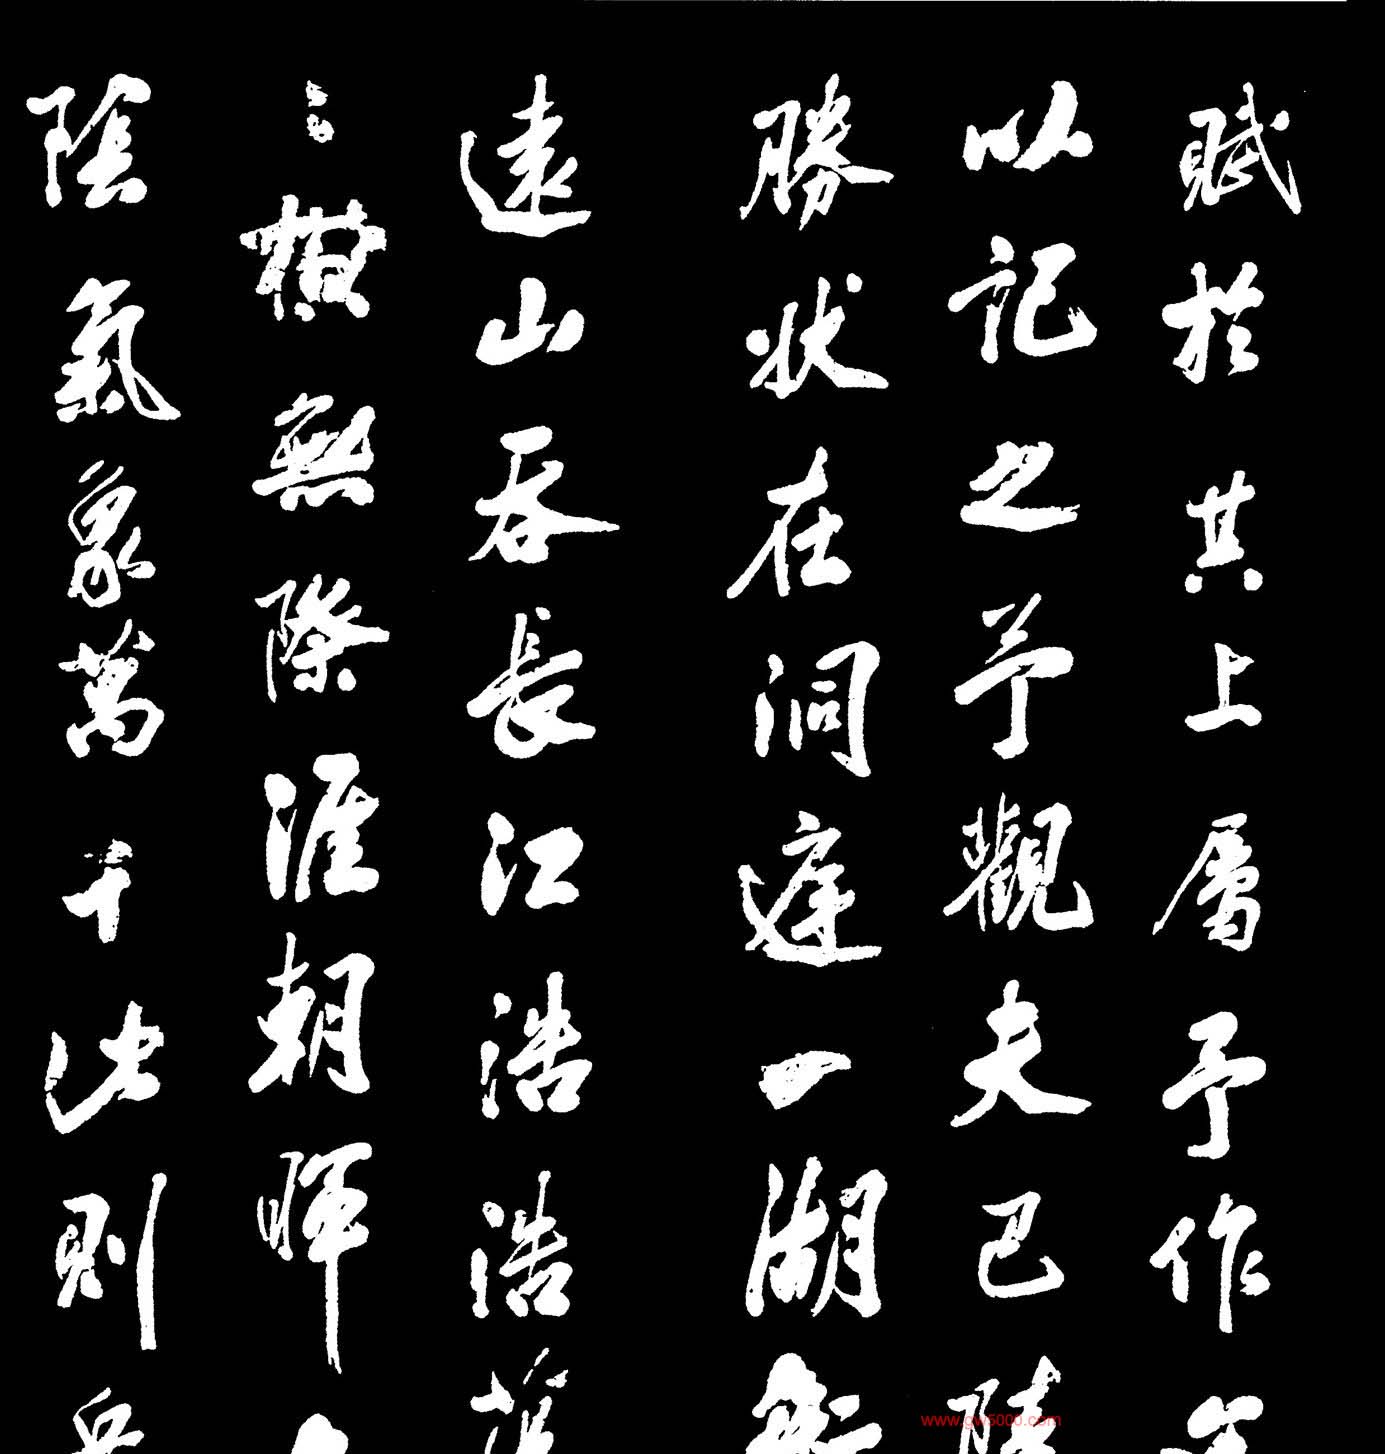 賦於其上屬予作
以記之予觀夫巴陵
勝狀在洞庭一湖銜
遠山吞長江浩浩蕩
〻橫無際涯朝暉
陰氣象萬千此則岳
www.gw5000.com